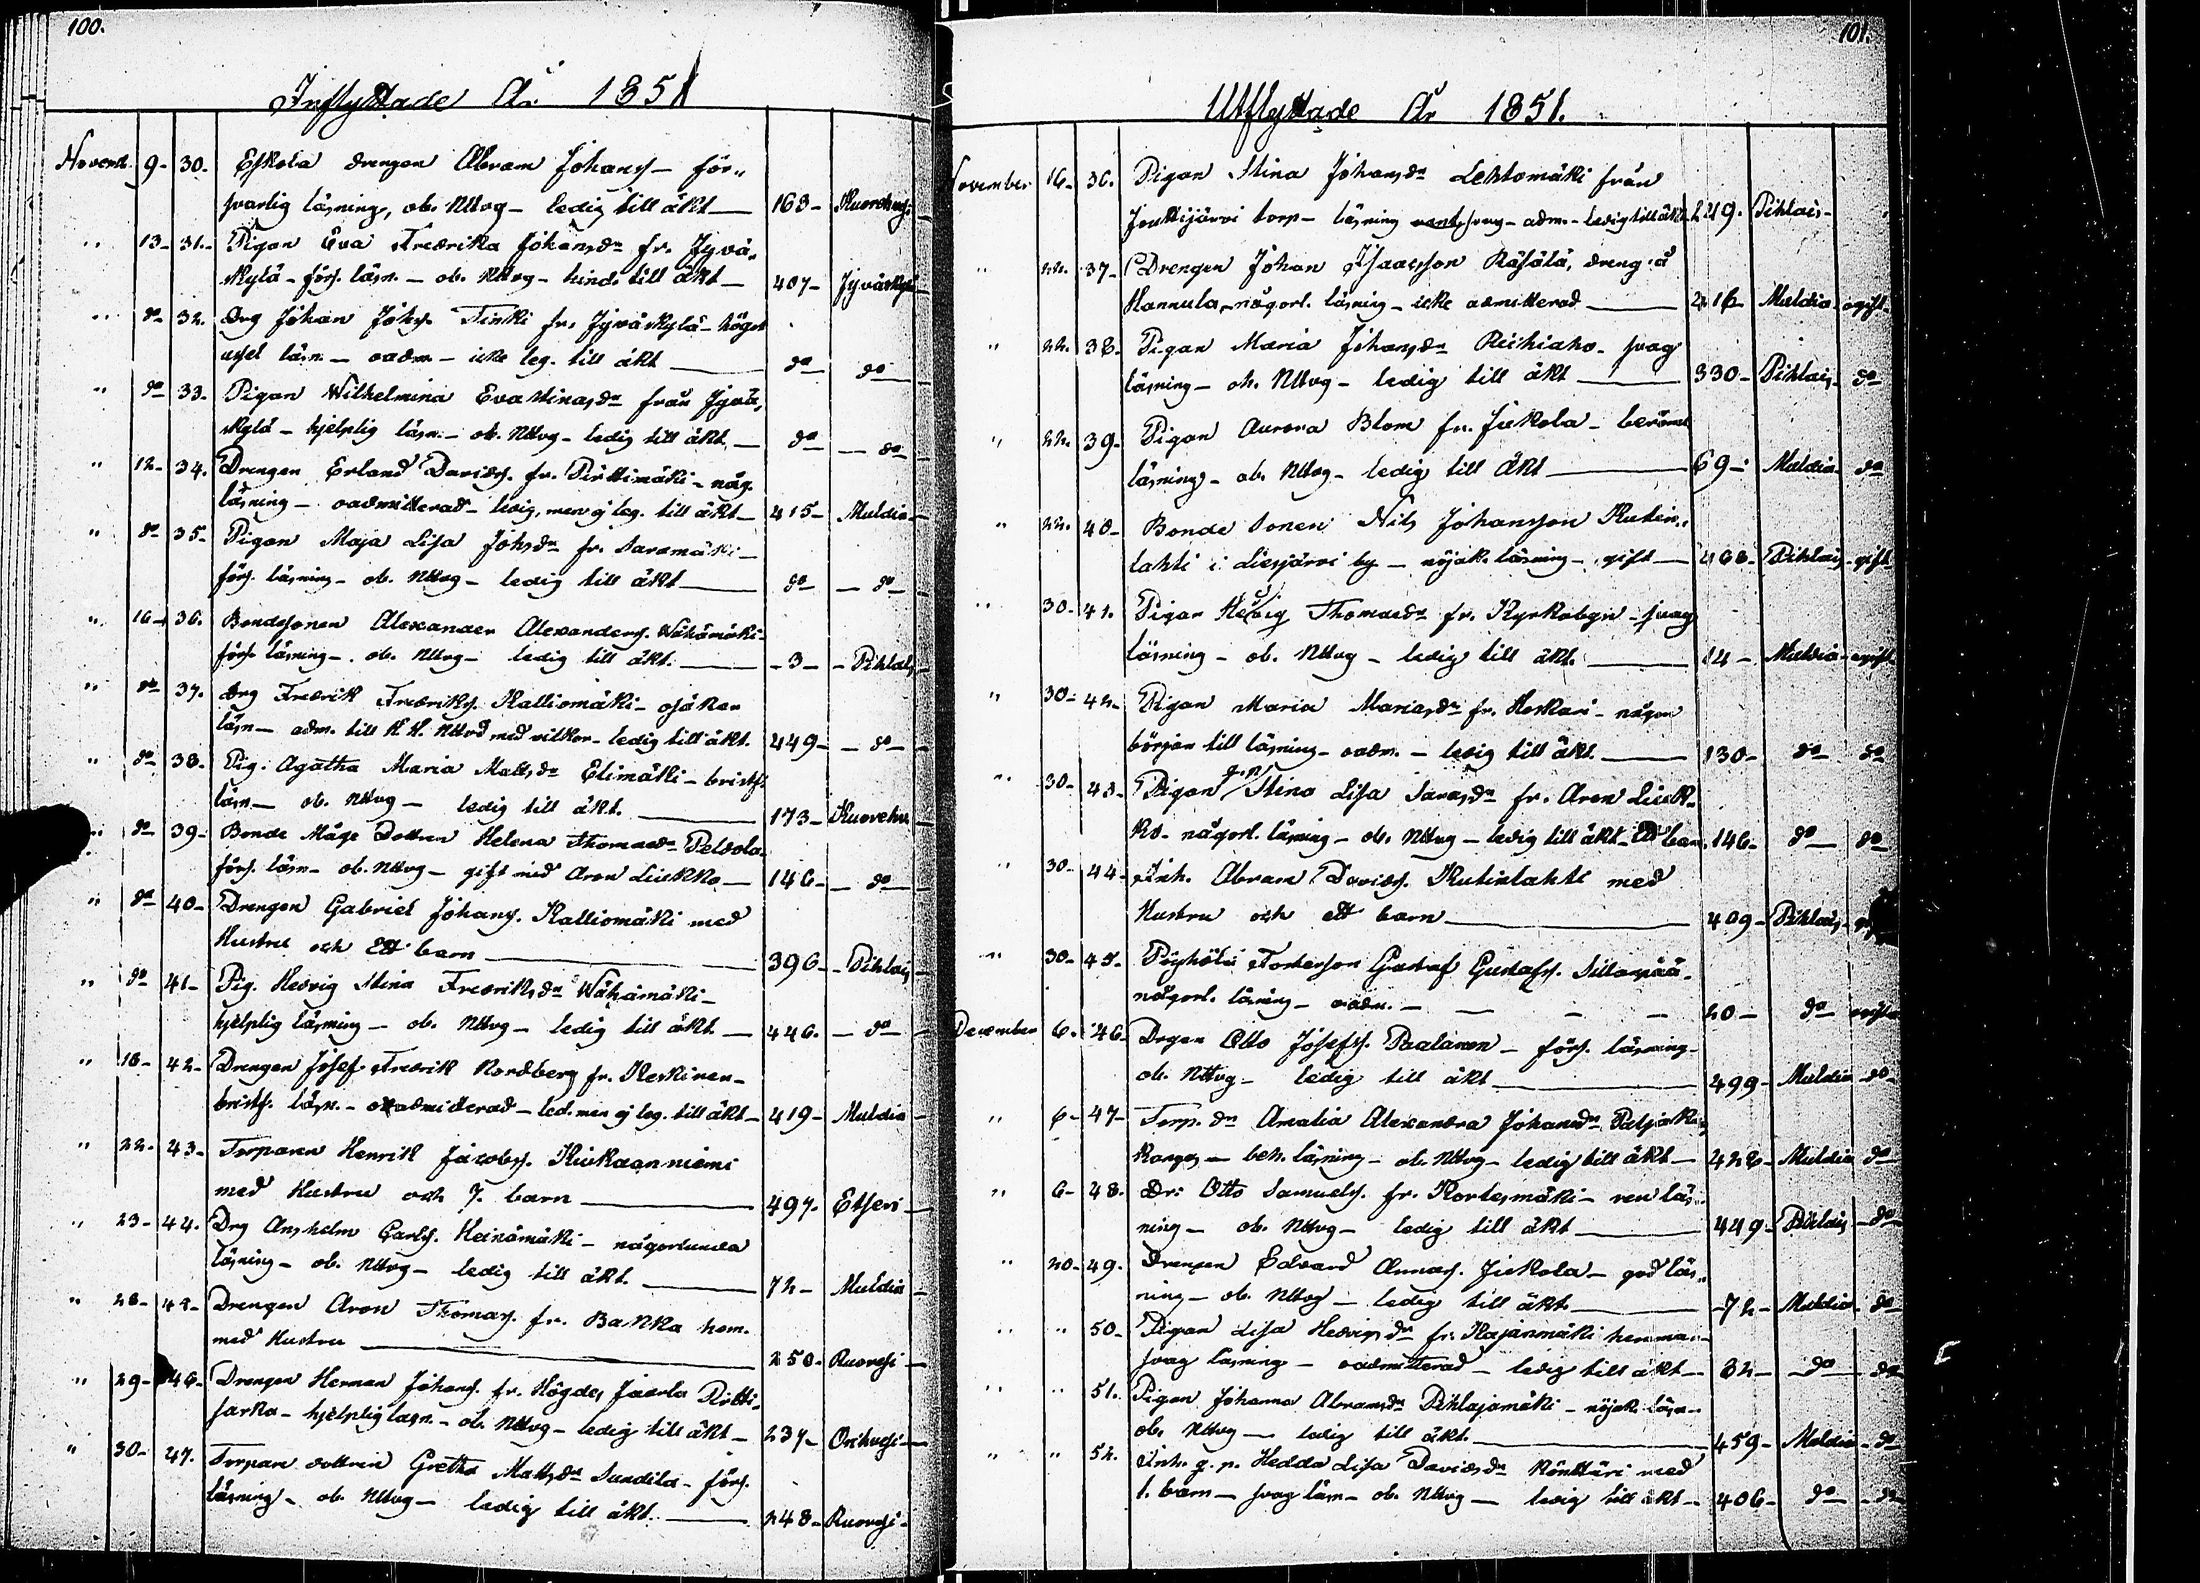 100.
Inflyttade År 1851
Novemb. 9- 30. Eskola drengen Abram Johanss- för-
svarlig läsning, ob. Nttvg- ledig till äkt- 163- Kuorehvesi
" 13- 31.- Pigan Eva Fredrika Johansdr fr. Jyvä-
skylä- förs. läsn.- ob. Nttvg- hind. till äkt- 407- Jyväskylä
" do 32. Drg Johan Johss. Tinki fr. Jyväskylä- högst
usel läsn.- oadm.- icke leg. till äkt do do
" do 33. Pigan Wilhelmina Eva Stinasdr från Jyvä-
skylä- hjelplig läsn.- ob. Nttvg- ledig till äkt.- do - do -
" 12- 34. Drengen Erland Davidss. fr. Pirttimäki- någ.
läsning- oadmitterad- ledig, men ej leg. till äkt- 415- Muldia-
" do 35- Pigan Maja Lisa Johsdr fr. Saramäki-
förs. läsning- ob. Nttvg- ledig till äkt do - do
" 16- 36. Bondesonen Alexander Alexanderss. Wähämäki-
förs. läsning-. ob. Nttvg- ledig till äkt. - 3 - - Pihlais
" do 37. Drg Fredrik Fredrikss. Kalliomäki- osäker
läsn- adm. till H. H. Nttvd med vilkor- ledig till äkt. 449- - do -
" do 38. Pig. Agatha Maria Mattsdr Elimäki- bristf.
läsn- ob. Nttvg- ledig till äkt. 173- Kuorehve
" do 39- Bonde Måge Dottren Helena Thomasdr Peldola-
förs. läsn- ob. Nttvg- gift med Aron Liekko- 146- - do -
" do 40- Drengen Gabriel Johanss. Kalliomäki med
Hustru och Ett barn 396- - Pihlais
" do 41- Pig. Hedvig Stina Fredriksdr Wähämäki-
hjelplig läsning- ob. Nttvg- ledig till äkt- 446. - do -
" 18- 42- Drengen Josef Fredrik Nordberg fr. Keskinen-
bristf. läsn.- oadmitterad- led. men ej leg. till äkt- 419- Muldia-
" 22- 43- Torparen Henrik Jacobss. Kiukaanniemi
med Hustru och 7. barn 497- Etseri-
" 23- 44. Drg Anshelm Carlss. Heinämäki- någorlunda
läsning- ob. Nttvg- ledig till äkt. 72- Muldia-
" 28- 45- Drengen Aron Thomass. fr. Bakka hem.
med Hustru 250- Ruovesi-
" 29- 46- Drengen Herman Johanss. fr. Högdes Jaarla Pirtti-
sarka- hjelplig läsn- ob. Nttvg- ledig till äkt- 237- Orihvesi-
" 30- 47. Torpare dottren Gretha Mattsdr Sundila- förs.
läsning- ob. Nttvg- ledig till äkt. 248- Ruovesi-
101.
Utflyttade År 1851.
November 16- 36. Pigan Stina Johansdr Lehtomäki från
torp- läsning svag- adm.- ledig till äkt. 219. Pihlais-
" 22. 37- Drengen Johan Isaacsson Räsälä, dreng å
Hannula, någorl. läsning- icke admitterad 216- Muldia- ogift.
" 22. 38- Pigan Maria Johansdr Riihiaho- svag
läsning- ob. Nttvg- ledig till äkt 330- Pihlais- do
" 22. 39- Pigan Aurora Blom fr. Jiskola- berömd
läsning- ob. Nttvg- ledig till äkt 69- Muldia- do
" 22. 40- Bonde Sonen Nils Johansson Kutin-
lahti i Liesjärvi by- nöjak. läsning- gift- 468- Pihlais- gift
" 30- 41. Pigan Hedvig Thomasdr fr. Kyrkobyn- svag
läsning- ob. Nttvg- ledig till äkt. 14- Muldia- ogift
" 30- 42- Pigan Maria Mariasdr fr. Heskari- någon
början till läsning- oadm.- ledig till äkt 130- do do
" 30- 43- Pigan Stina Lisa Sarasdr fr. Aron Liek-
ko- någorl. läsning- ob. Nttvg- ledig till äkt- Ett barn 146- do do
" 30- 44- Inh. Abram Davidss. Kutinlahti med
Hustru och ett barn 409- Pihlais-
" 30- 45- Fosterson Gustaf Gustafss. Sillanpää-
någorl. läsning- oadm. - 20- do ogift
December 6. 46- Drgen Otto Josefss. Paalanen- förs. läsning-
ob. Nttvg- ledig till äkt 499- Muldia do-
" 6- 47- Torp. dr Amalia Alexandra Johansdr
Kangas- ben. läsning- ob. Nttvg- ledig till äkt- 428- Muldia do
" 6- 48. Dr: Otto Samuelss. fr. Kortesmäki- ren läs-
ning- ob. Nttvg- ledig till äkt 449- Pihlais -do
" 20- 49. Drengen Edvard Annass. Jiskola- god läs-
ning- ob. Nttvg- ledig till äkt. -72- Muldia- do
" " 50- Pigan Lisa Hedvigsdr fr. Kajanmäki hemma-
svag läsning- oadmitterad- ledig till äkt- 32- -do do
" " 51. Pigan Johanna Abramsdr Pihlajamäki- nöjak. läsn-
ob. Nttvg- ledig till äkt. 459- Muldia- do
" " 52. Inh. q. p. Hedda Lisa Davidsdr Könttäri med
1. barn- svag läsn- ob. Nttvg- ledig till äkt- 406- do- -do